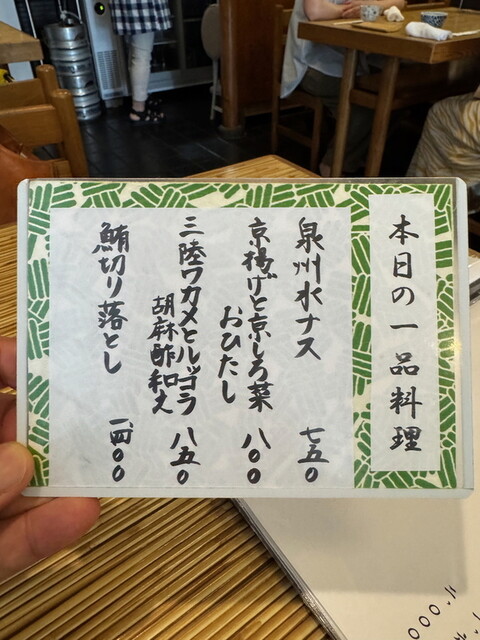 本日の一品料理
泉州水ナス 七五〇
京揚げと京しろ菜
おひたし 八〇〇
三陸ワカメとルッコラ
胡麻酢和え 八五〇
鮪切り落とし 一、四〇〇